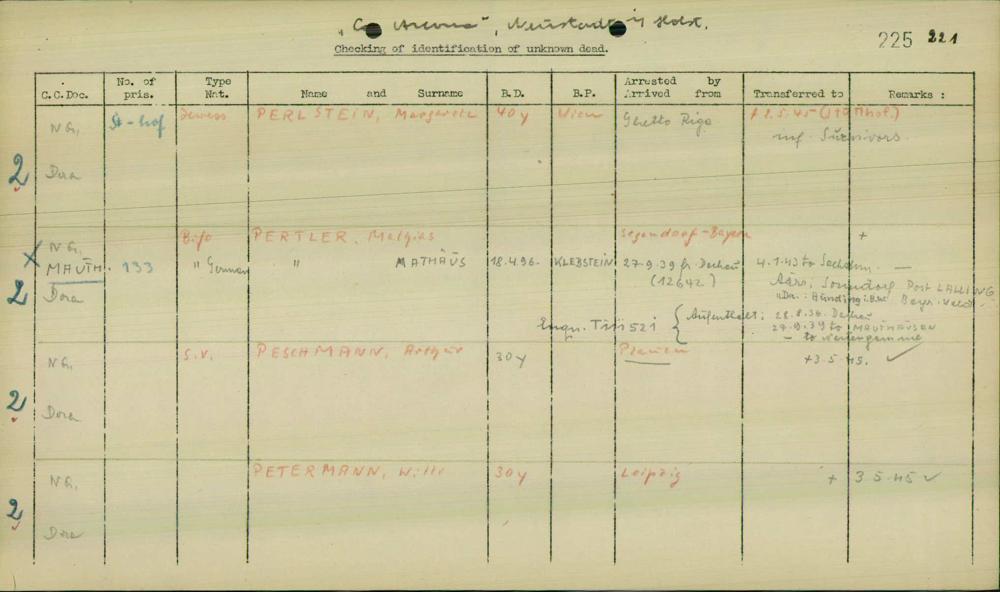 "Cap Arcona", Neustadt i/ Holst.
225 221
Checking of identification of unknown dead.
C.C.Doc. No. of pris. Type Nat. Name and Surname B.D. B.P. Arrested by Arrived from Transferred to Remarks :
NG. St-hof Jewess PERLSTEIN, Margarete 40y Wien Ghetto Riga + 3.5.45 (Stutthof.)
inf. Survivors.
2 Dora
NG. Bifo PERTLER, Mathias Segendorf-Bayern +
X MAUTH. 133 " German " MATHÄUS 18.4.96. KLEBSTEIN 27.9.39 fr. Dachau 4.1.43 to Sachshn. —
2 Dora (12642) Adrs: Sonndorf Post LALLING
Bayr.
Enqu. 521 { Aufenthalt: 28.8.36. Dachau
27.9.39 to MAUTHAUSEN
— to Neuengamme
NG. S.V. PESCHMANN, Arthur 30y Plauen +3.5.45. ✓
2 Dora
NG. PETERMANN, Willi 30y Leipzig + 3.5.45 ✓
2 Dora